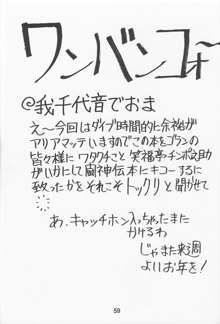 ワンバンコォ〜
@我千代音でおま
え〜今回はダイブ時間的に余裕が
アリアマッテいますのでこの本をゴランの
皆々様にワタクチこと笑福亭チンポ之助
がいかにして闘神伝本にキコーするに
至ったかをそれこそトックリと聞かせて
あ、キャッチホン入っちゃたまた
かけるわ
じゃまた来週
よいお年を!
59